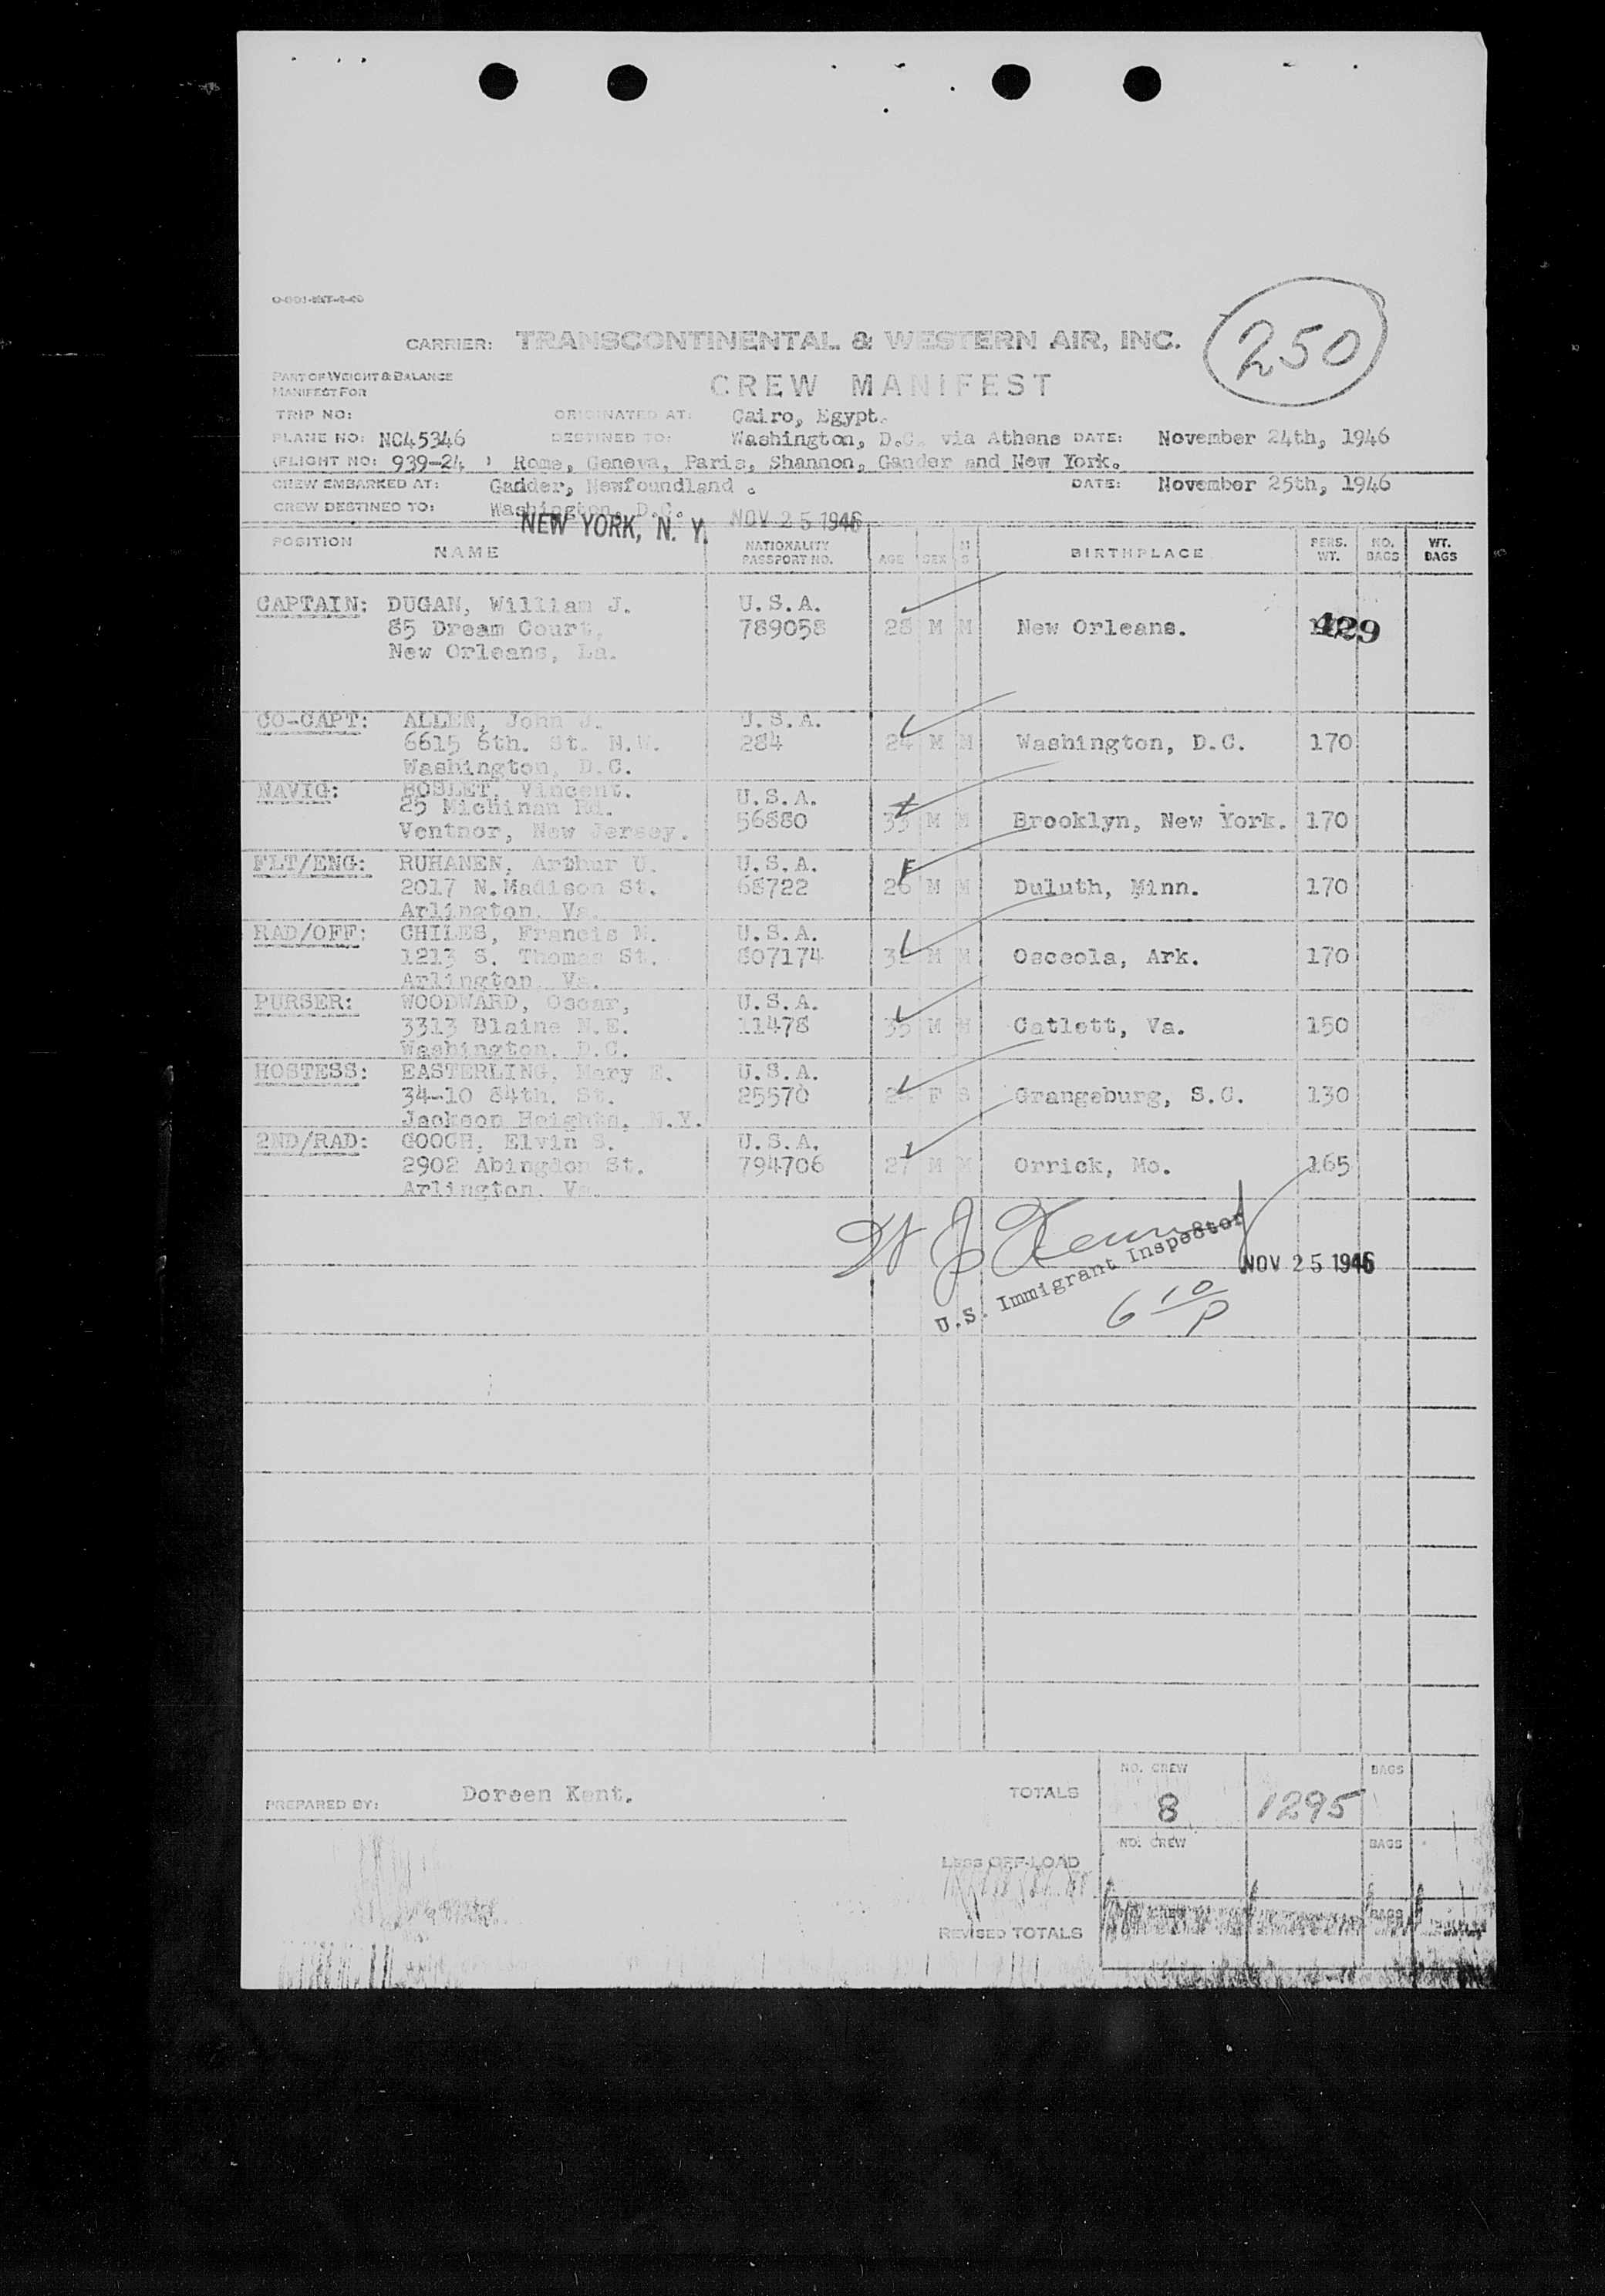 CARRIER: TRANSCONTINENTAL & WESTERN AIR, INC.
250
PART OF WEIGHT & BALANCE
MANIFEST FOR
CREW MANIFEST
TRIP NO: ORIGINATED AT: Cairo, Egypt.
PLANE NO: NC45346 DESTINED TO: Washington, D.C. via Athens DATE: November 24th, 1946
(FLIGHT NO: 939-24 ) Rome, Geneva, Paris, Shannon, Gander and New York.
CREW EMBARKED AT: Gander, Newfoundland . DATE: November 25th, 1946
CREW DESTINED TO: Washington, D.C.
NEW YORK, N. Y. NOV 25 1946
POSITION NAME NATIONALITY PASSPORT NO. AGE SEX M S BIRTHPLACE PERS. WT. NO. BAGS WT. BAGS
CAPTAIN: DUGAN, William J. U.S.A.
85 Dream Court, 789058 28 M M New Orleans. 429
New Orleans, La.
CO-CAPT: ALLEN, John J. U.S.A.
6615 6th. St. N.W. 284 24 M M Washington, D.C. 170
Washington, D.C.
NAVIG: BOSLET, Vincent. U.S.A.
25 Michinan Rd. 56880 33 M M Brooklyn, New York. 170
Ventnor, New Jersey.
FLT/ENG: RUHANEN, Arthur U. U.S.A.
2017 N. Madison St. 68722 26 M M Duluth, Minn. 170
Arlington, Va.
RAD/OFF: CHILES, Francis M. U.S.A.
1213 S. Thomas St. 807174 M M Osceola, Ark. 170
Arlington, Va.
PURSER: WOODWARD, Oscar, U.S.A.
3313 Blaine N.E. 11478 35 M M Catlett, Va. 150
Washington, D.C.
HOSTESS: EASTERLING, Mary E. U.S.A.
34-10 84th. St. 25570 24 F S Orangeburg, S.C. 130
Jackson Heights, N.Y.
2ND/RAD: GOOCH, Elvin S. U.S.A.
2902 Abingdon St. 794706 27 M M Orrick, Mo. 165
Arlington, Va.
U.S. Immigrant Inspector
NOV 25 1946
6 10 P
PREPARED BY: Doreen Kent.
TOTALS NO. CREW 8 1295 BAGS
LESS OFF-LOAD NO. CREW BAGS
REVISED TOTALS NO. CREW BAGS